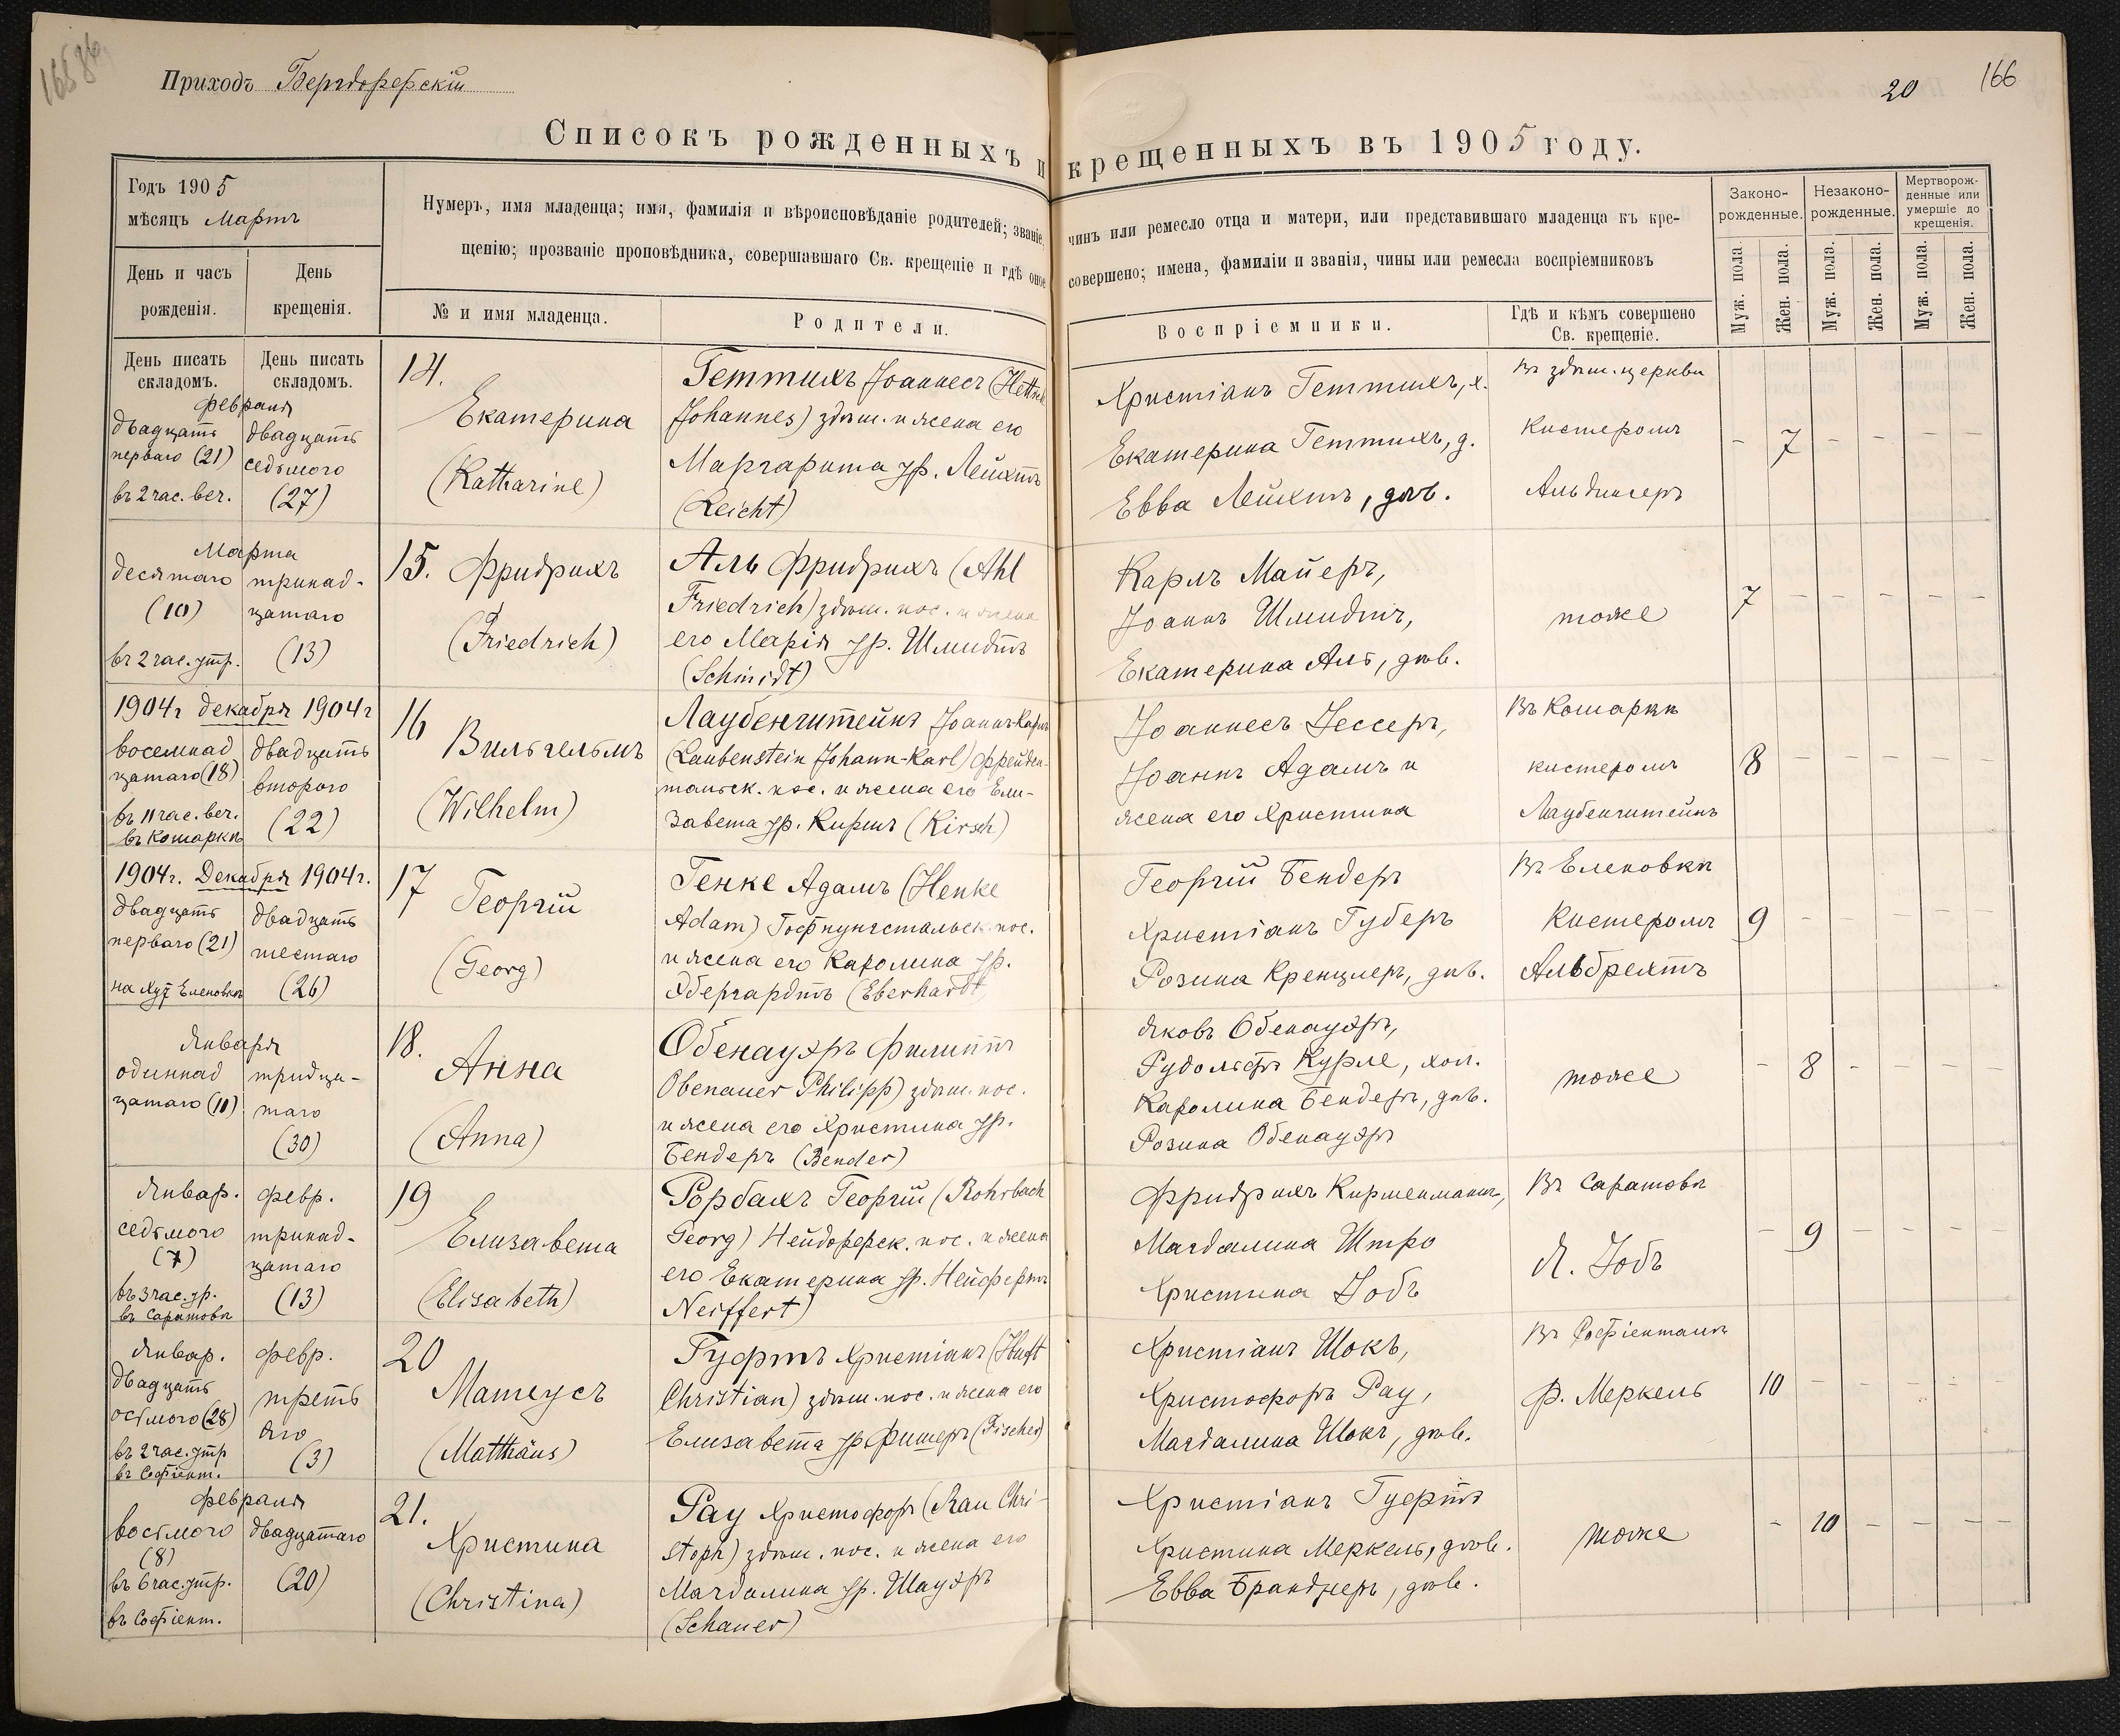 165 об.
Приходъ Бергдорфскій
20
166
Списокъ рожденныхъ и крещенныхъ въ 1905 году.
Годъ 1905
мѣсяцъ Мартъ
День и часъ рожденія.
День крещенія.
Нумеръ, имя младенца; имя, фамилія и вѣроисповѣданіе родителей; званіе, чинъ или ремесло отца и матери, или представившаго младенца къ кре-
щенію; прозваніе проповѣдника, совершавшаго Св. крещеніе и гдѣ оное совершено; имена, фамиліи и званія, чины или ремесла воспріемниковъ
№ и имя младенца.
Родители.
Воспріемники.
Гдѣ и кѣмъ совершено
Св. крещеніе.
Законо-
рожденные.
Незаконо-
рожденные.
Мертворож-
денные или
умершіе до
крещенія.
Муж. пола.
Жен. пола.
Муж. пола.
Жен. пола.
Муж. пола.
Жен. пола.
День писать
складомъ.
День писать
складомъ.
Февраля
двадцать
перваго (21)
въ 2 час. веч.
двадцать
седьмого
(27)
14.
Екатерина
(Katharine)
Геттихъ Іоаннесъ (Hettich
Johannes) здѣш. и жена его
Маргарита ур. Лейхтъ
(Leicht)
Христіанъ Геттихъ, х.
Екатерина Геттихъ, д.
Евва Лейхтъ, дѣв.
Въ здѣш. церкви
Кистеромъ
Альдингеръ
- 7 - - - -
Марта
десятаго
(10)
въ 2 час. утр.
тринад-
цатаго
(13)
15. Фридрихъ
(Friedrich)
Аль Фридрихъ (Ahl
Friedrich) здѣш. пос. и жена
его Марія ур. Шмидтъ
(Schmidt)
Карлъ Майеръ,
Іоаннъ Шмидтъ,
Екатерина Аль, дѣв.
тоже
7 - - - - -
1904г Декабря 1904г
восемнад
цатаго (18)
въ 11 час. веч.
въ Кошаркѣ
двадцать
второго
(22)
16
Вильгельмъ
(Wilhelm)
Лаубенштейнъ Іоаннъ-Карлъ
(Laubenstein Johann-Karl) Фрейден-
тальск. пос. и жена его Ели-
завета ур. Киршъ (Kirsch)
Іоаннесъ Цессеръ,
Іоаннъ Адамъ и
жена его Христина
Въ Кошаркѣ
кистеромъ
Лаубенштейнъ
8 - - - - -
1904г. Декабря 1904г.
двадцать
перваго (21)
на хут. Еленовкѣ
двадцать
шестаго
(26)
17 Георгій
(Georg)
Генке Адамъ (Henke
Adam) Гофнунгстальск. пос.
и жена его Каролина ур.
Эбергардтъ (Eberhardt)
Георгій Бендеръ
Христіанъ Губеръ
Розина Кренцлеръ, дѣв.
Въ Еленовкѣ
Кистеромъ
Альбрехтъ
9 - - - - -
Января
одиннад
цатаго (11)
тридца-
таго
(30)
18.
Анна
(Anna)
Обенауэръ Филиппъ
Obenauer Philipp) здѣш. пос.
и жена его Христина ур.
Бендеръ (Bender)
Яковъ Обенауэръ,
Рудольфъ Курле, хол.
Каролина Бендеръ, дѣв.
Розина Обенауэръ
тоже
- 8 - - - -
Январ.
седьмого
(7)
въ 3 час. ур.
въ Саратовѣ
Февр.
тринад-
цатаго
(13)
19
Елизавета
(Elisabeth)
Рорбахъ Георгій (Rohrbach
Georg) Нейдорфск. пос. и жена
его Екатерина ур. Нейфертъ
Neiffert)
Фридрихъ Киршенманъ,
Магдалина Штро
Христина Іобъ
Въ Саратовѣ
Я. Іобъ
- 9 - - - -
Январ.
двадцать
осьмого (28)
въ 2 час. утр
въ Софіент.
Февр.
треть
яго
(3)
20
Матеусъ
(Matthäus)
Гуфтъ Христіанъ (Huft
Christian) здѣш. пос. и жена его
Елизавета ур. Фишеръ (Fischer)
Христіанъ Шокъ,
Христофоръ Рау,
Магдалина Шокъ, дѣв.
Въ Софіенталѣ
Ф. Меркель
10 - - - - -
Февраля
восьмого
(8)
въ 6 час. утр.
въ Софіент.
двадцатаго
(20)
21.
Христина
(Christina)
Рау Христофоръ (Rau Chri-
stoph) здѣш. пос. и жена его
Магдалина ур. Шауэръ
(Schauer)
Христіанъ Гуфтъ
Христина Меркель, дѣв.
Евва Бранднеръ, дѣв.
тоже
- 10 - - - -